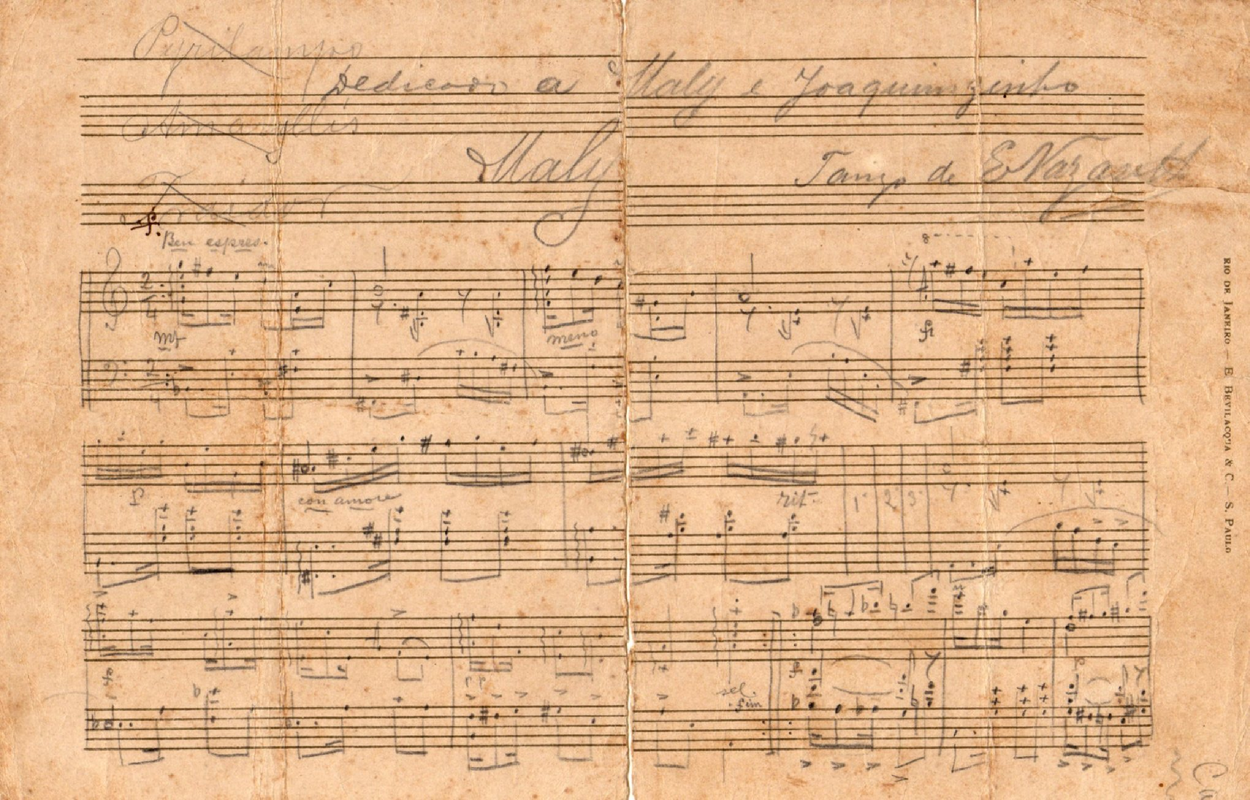 Pyrilampo
Dedicado a Maly e Joaquimzinho
Amaryllis
Maly
Tango de E Nazareth
Ben espres.
mf
meno
8
con amore
rit.
1ª 2ª 3ª
Fim
RIO DE JANEIRO — E. BEVILACQUA & C. — S. PAULO